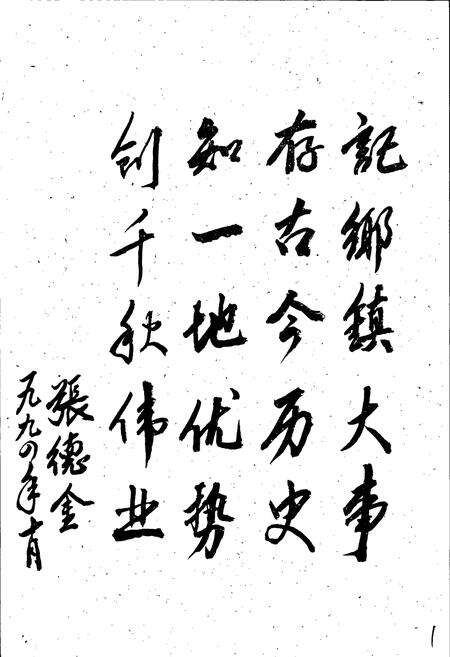 記鄉鎮大事
存古今历史
知一地优势
创千秋伟业
張德金
一九九四年十月
1